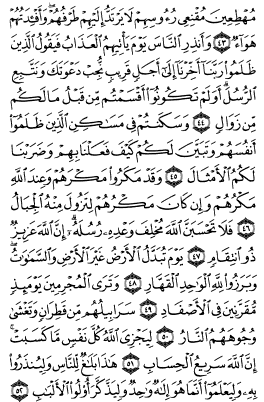 مُهْطِعِينَ مُقْنِعِي رُءُوسِهِمْ لَا يَرْتَدُّ إِلَيْهِمْ طَرْفُهُمْ ۖ وَأَفْـِٔدَتُهُمْ
هَوَآءٌ ٤٣ وَأَنذِرِ ٱلنَّاسَ يَوْمَ يَأْتِيهِمُ ٱلْعَذَابُ فَيَقُولُ ٱلَّذِينَ
ظَلَمُوا۟ رَبَّنَآ أَخِّرْنَآ إِلَىٰٓ أَجَلٍ قَرِيبٍ نُّجِبْ دَعْوَتَكَ وَنَتَّبِعِ
ٱلرُّسُلَ ۗ أَوَلَمْ تَكُونُوٓا۟ أَقْسَمْتُم مِّن قَبْلُ مَا لَكُم
مِّن زَوَالٍ ٤٤ وَسَكَنتُمْ فِي مَسَٰكِنِ ٱلَّذِينَ ظَلَمُوٓا۟
أَنفُسَهُمْ وَتَبَيَّنَ لَكُمْ كَيْفَ فَعَلْنَا بِهِمْ وَضَرَبْنَا
لَكُمُ ٱلْأَمْثَالَ ٤٥ وَقَدْ مَكَرُوا۟ مَكْرَهُمْ وَعِندَ ٱللَّهِ
مَكْرُهُمْ وَإِن كَانَ مَكْرُهُمْ لِتَزُولَ مِنْهُ ٱلْجِبَالُ
٤٦ فَلَا تَحْسَبَنَّ ٱللَّهَ مُخْلِفَ وَعْدِهِۦ رُسُلَهُۥٓ ۗ إِنَّ ٱللَّهَ عَزِيزٌ
ذُو ٱنتِقَامٍ ٤٧ يَوْمَ تُبَدَّلُ ٱلْأَرْضُ غَيْرَ ٱلْأَرْضِ وَٱلسَّمَٰوَٰتُ ۖ
وَبَرَزُوا۟ لِلَّهِ ٱلْوَٰحِدِ ٱلْقَهَّارِ ٤٨ وَتَرَى ٱلْمُجْرِمِينَ يَوْمَئِذٍ
مُّقَرَّنِينَ فِي ٱلْأَصْفَادِ ٤٩ سَرَابِيلُهُم مِّن قَطِرَانٍ وَتَغْشَىٰ
وُجُوهَهُمُ ٱلنَّارُ ٥٠ لِيَجْزِيَ ٱللَّهُ كُلَّ نَفْسٍ مَّا كَسَبَتْ ۚ
إِنَّ ٱللَّهَ سَرِيعُ ٱلْحِسَابِ ٥١ هَٰذَا بَلَٰغٌ لِّلنَّاسِ وَلِيُنذَرُوا۟
بِهِۦ وَلِيَعْلَمُوٓا۟ أَنَّمَا هُوَ إِلَٰهٌ وَٰحِدٌ وَلِيَذَّكَّرَ أُو۟لُوا۟ ٱلْأَلْبَٰبِ ٥٢